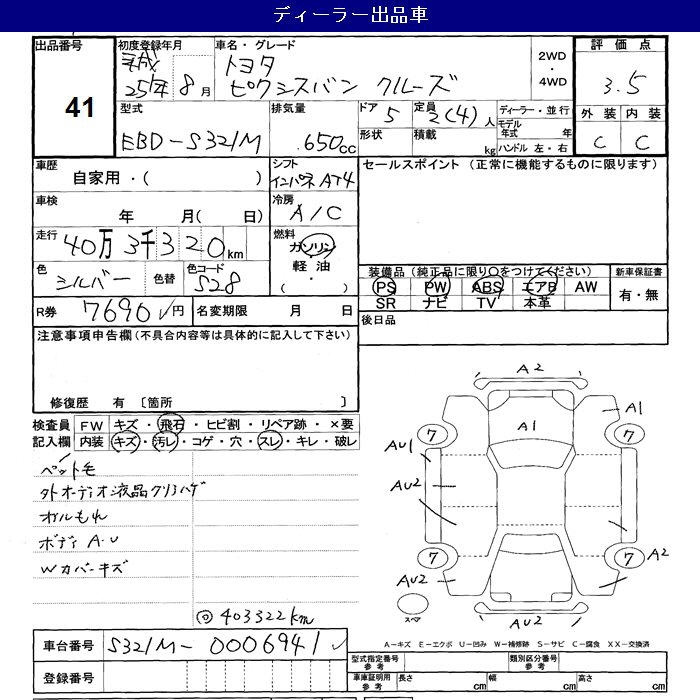 ディーラー出品車
出品番号 41
初度登録年月 平成 25年 8月
車名・グレード トヨタ ピクシスバン クルーズ
2WD・4WD
評価点 3.5
外装 C 内装 C
型式 EBD-S321M
排気量 650cc
ドア 5
定員 2(4)人
形状
積載 kg
ディーラー・並行
モデル年式 年
ハンドル 左・右
車歴 自家用・( )
シフト インパネAT4
セールスポイント(正常に機能するものに限ります)
車検 年 月( 日)
冷房 A/C
走行 40万3千320km
燃料 ガソリン 軽油 ( ・ )
色 シルバー 色替 色コード S28
装備品(純正品に限り○をつけてください)
PS PW ABS エアB AW
SR ナビ TV 本革
新車保証書 有・無
R券 7690円
名変期限 月 日
後日品
注意事項申告欄(不具合内容等は具体的に記入して下さい)
修復歴 有 〔箇所 〕
検査員記入欄
FW キズ・飛石・ヒビ割・リペア跡・×要
内装 キズ・汚レ・コゲ・穴・スレ・キレ・破レ
ペット毛
外オーディオ液晶クリアハゲ
オイルもれ
ボディA・U
Wカバーキズ
◎403322km
A2
A1
A1
7
7
AU1
AU2
7
7
A2
AU2
AU2
スペア
A-キズ E-エクボ U-凹み W-補修跡 S-サビ C-腐食 XX-交換済
車台番号 S321M-0006941
登録番号
型式指定番号 参考
類別区分番号 参考
車庫証明用 参考 長さ cm 幅 cm 高さ cm